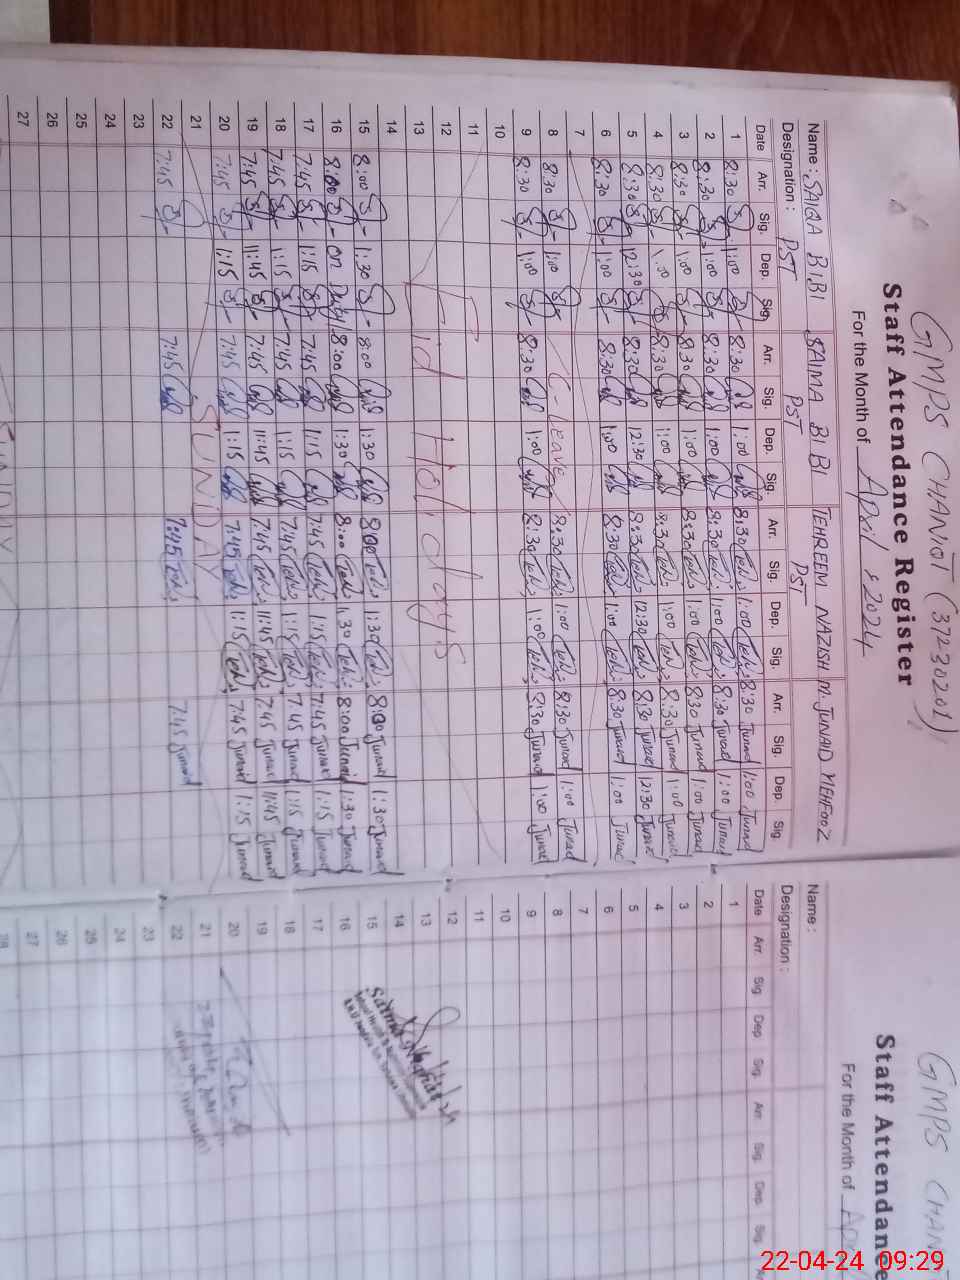 GMPS CHANOT (37230201)
Staff Attendance Register
For the Month of April, 2024
Name : SAIQA BIBI SAIMA BIBI TEHREEM NAZISH M. JUNAID MEHFOOZ
Designation : PST PST PST
Date Arr. Sig. Dep. Sig. Arr. Sig. Dep. Sig. Arr. Sig. Dep. Sig. Arr. Sig. Dep. Sig.
1 8:30 1:00 8:30 1:00 8:30 Teh 1:00 Teh 8:30 Junaid 1:00 Junaid
2 8:30 1:00 8:30 1:00 8:30 Teh 1:00 Teh 8:30 Junaid 1:00 Junaid
3 8:30 1:00 8:30 1:00 8:30 Teh 1:00 Teh 8:30 Junaid 1:00 Junaid
4 8:30 1:00 8:30 1:00 8:30 Teh 1:00 Teh 8:30 Junaid 1:00 Junaid
5 8:30 12:30 8:30 12:30 8:30 Teh 12:30 Teh 8:30 Junaid 12:30 Junaid
6 8:30 1:00 8:30 1:00 8:30 Teh 1:00 Teh 8:30 Junaid 1:00 Junaid
7
8 8:30 1:00 C-Leave 8:30 Teh 1:00 Teh 8:30 Junaid 1:00 Junaid
9 8:30 1:00 8:30 1:00 8:30 Teh 1:00 Teh 8:30 Junaid 1:00 Junaid
10
11
12 Eid Holidays
13
14
15 8:00 1:30 8:00 1:30 8:00 Teh 1:30 Teh 8:00 Junaid 1:30 Junaid
16 8:00 on Duty 8:00 1:30 8:00 Teh 1:30 Teh 8:00 Junaid 1:30 Junaid
17 7:45 1:15 7:45 1:15 7:45 Teh 1:15 Teh 7:45 Junaid 1:15 Junaid
18 7:45 1:15 7:45 1:15 7:45 Teh 1:15 Teh 7:45 Junaid 1:15 Junaid
19 7:45 11:45 7:45 11:45 7:45 Teh 11:45 Teh 7:45 Junaid 11:45 Junaid
20 7:45 1:15 7:45 1:15 7:45 Teh 1:15 Teh 7:45 Junaid 1:15 Junaid
21 SUNDAY
22 7:45 7:45 7:45 Teh 7:45 Junaid
23
24
25
26
27
SUNDAY
GMPS CHAN
Staff Attendance
For the Month of Ap
Name :
Designation :
Date Arr. Sig. Dep. Sig. Arr. Sig. Dep. Sig. A
1
2
3
4
5
6
7
8
9
10
11
12
13
14
15
16
17
18
19
20
21
22
23
24
25
26
27
28
22-04-24 09:29